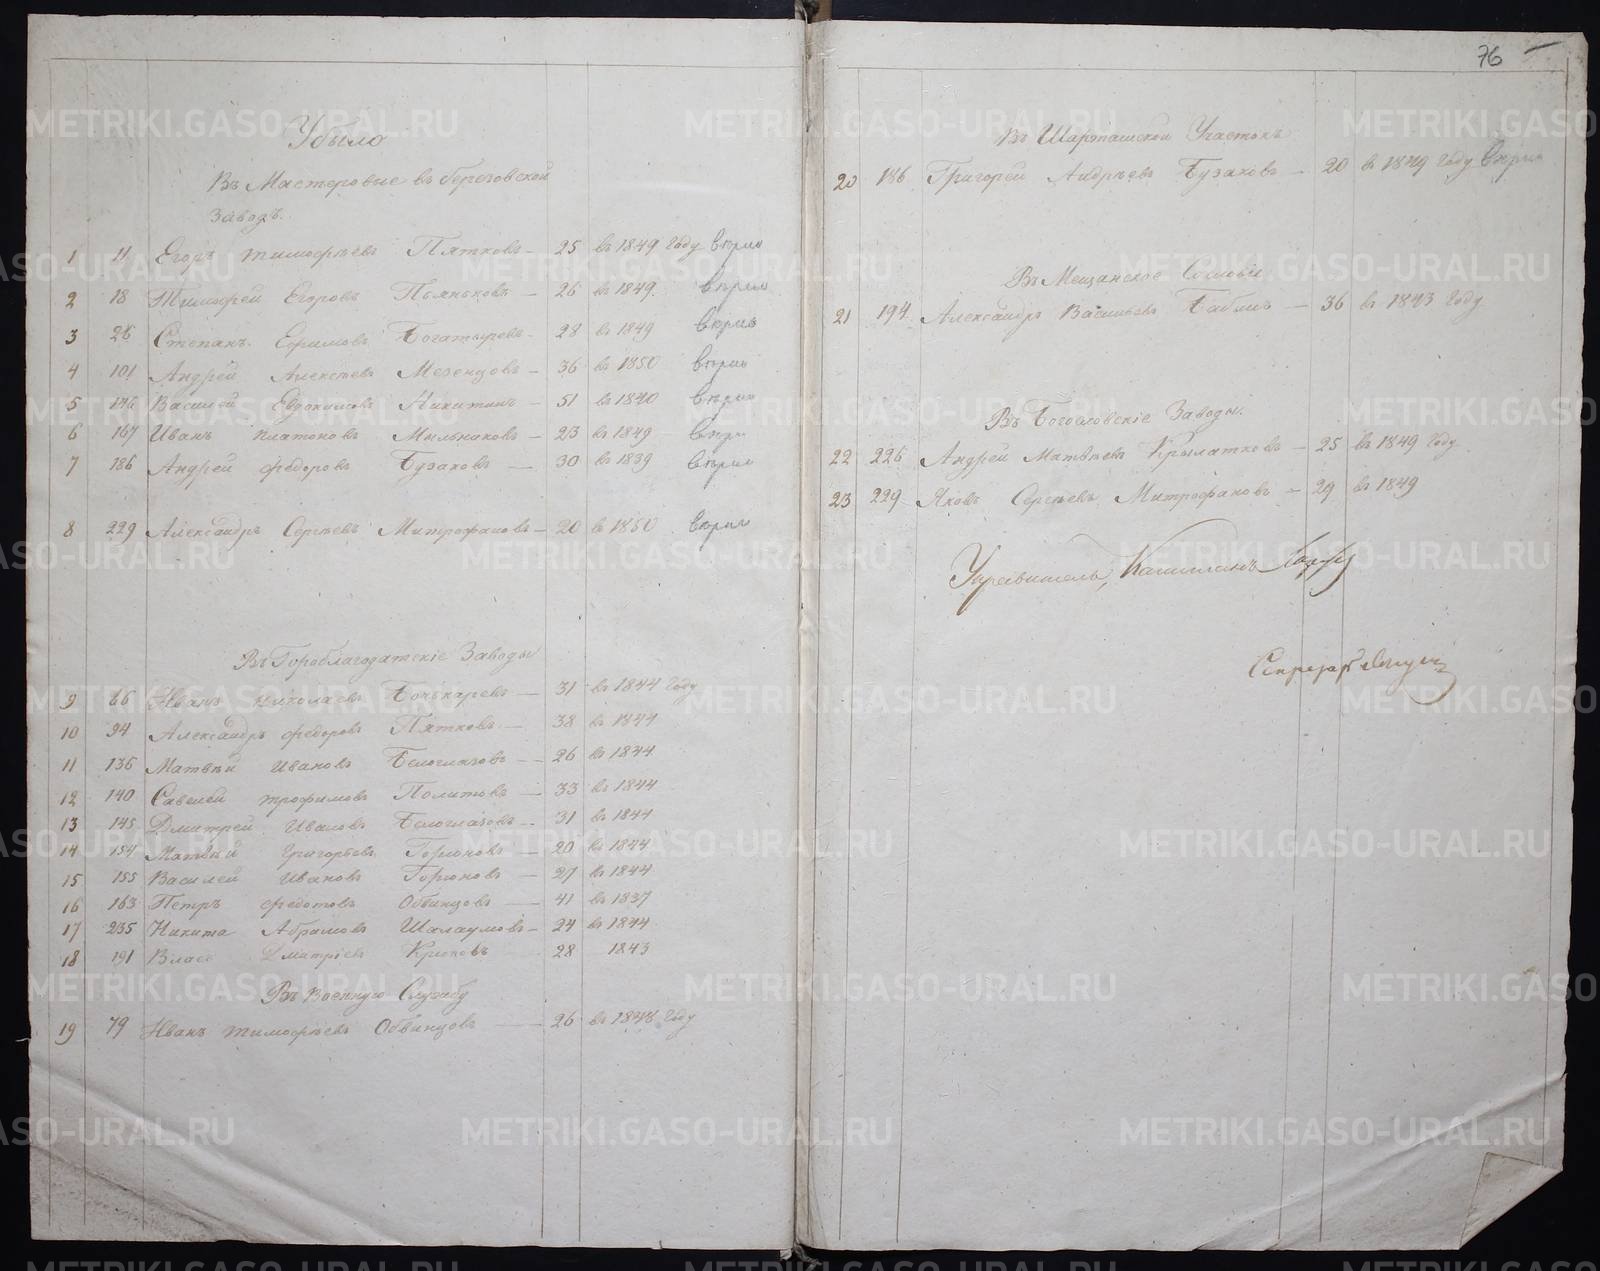 76
Убыло
Въ Мастеровые въ березовской
Заводъ.
1 11 Егоръ тимофѣевъ Пятковъ — 25 въ 1849 году вѣрно
2 18 Тимофей Егоровъ Пьянковъ — 26 въ 1849. вѣрно
3 26 Степанъ Ефимовъ Богатыревъ — 28 въ 1849 вѣрно
4 101 Андрей Алексѣевъ Мезенцовъ — 36 въ 1850 вѣрно
5 146 Василей Евдокимовъ Никитинъ — 51 въ 1840 вѣрно
6 167 Иванъ платоновъ Мыльнаковъ — 23 въ 1849 вѣрно
7 186 Андрей федоровъ Бузаковъ — 30 въ 1839 вѣрно
8 229 Александръ Сергѣевъ Митрофановъ — 20 въ 1850 вѣрно
Въ Гороблагодатскіе Заводы
9 66 Иванъ николаевъ Бочкаревъ — 31 въ 1844 году
10 94 Александръ федоровъ Пятковъ — 38 въ 1844
11 136 Матвѣй Ивановъ Белоглазовъ — 26 въ 1844
12 140 Савелей трофимовъ Политовъ — 33 въ 1844
13 145 Дмитрей Ивановъ Белоглазовъ — 31 въ 1844
14 154 Матвѣй григорьевъ Горюновъ — 20 въ 1844
15 155 Василей Ивановъ Горюновъ — 27 въ 1844
16 163 Петръ федотовъ Обвинцовъ — 41 въ 1837
17 235 Никита Абрамовъ Шалаумовъ — 24 въ 1844
18 191 Власъ Дмитріевъ Крюковъ 28 1843
Въ Военную Службу
19 79 Иванъ тимофѣевъ Обвинцовъ — 26 въ 1848 году
Въ Шарташской Участокъ
20 186 Григорей Андрѣевъ Бузаковъ — 20 въ 1849 году вѣрно
Въ Мещанское Сословіе
21 194 Александръ Васильевъ — 36 въ 1843 году
Въ Богословскіе Заводы.
22 226 Андрей Матвѣевъ Крылатковъ — 25 въ 1849 году
23 229 Яковъ Сергѣевъ Митрофановъ — 29 въ 1849
Управитель, Капитанъ
Секретарь
METRIKI.GASO-URAL.RU